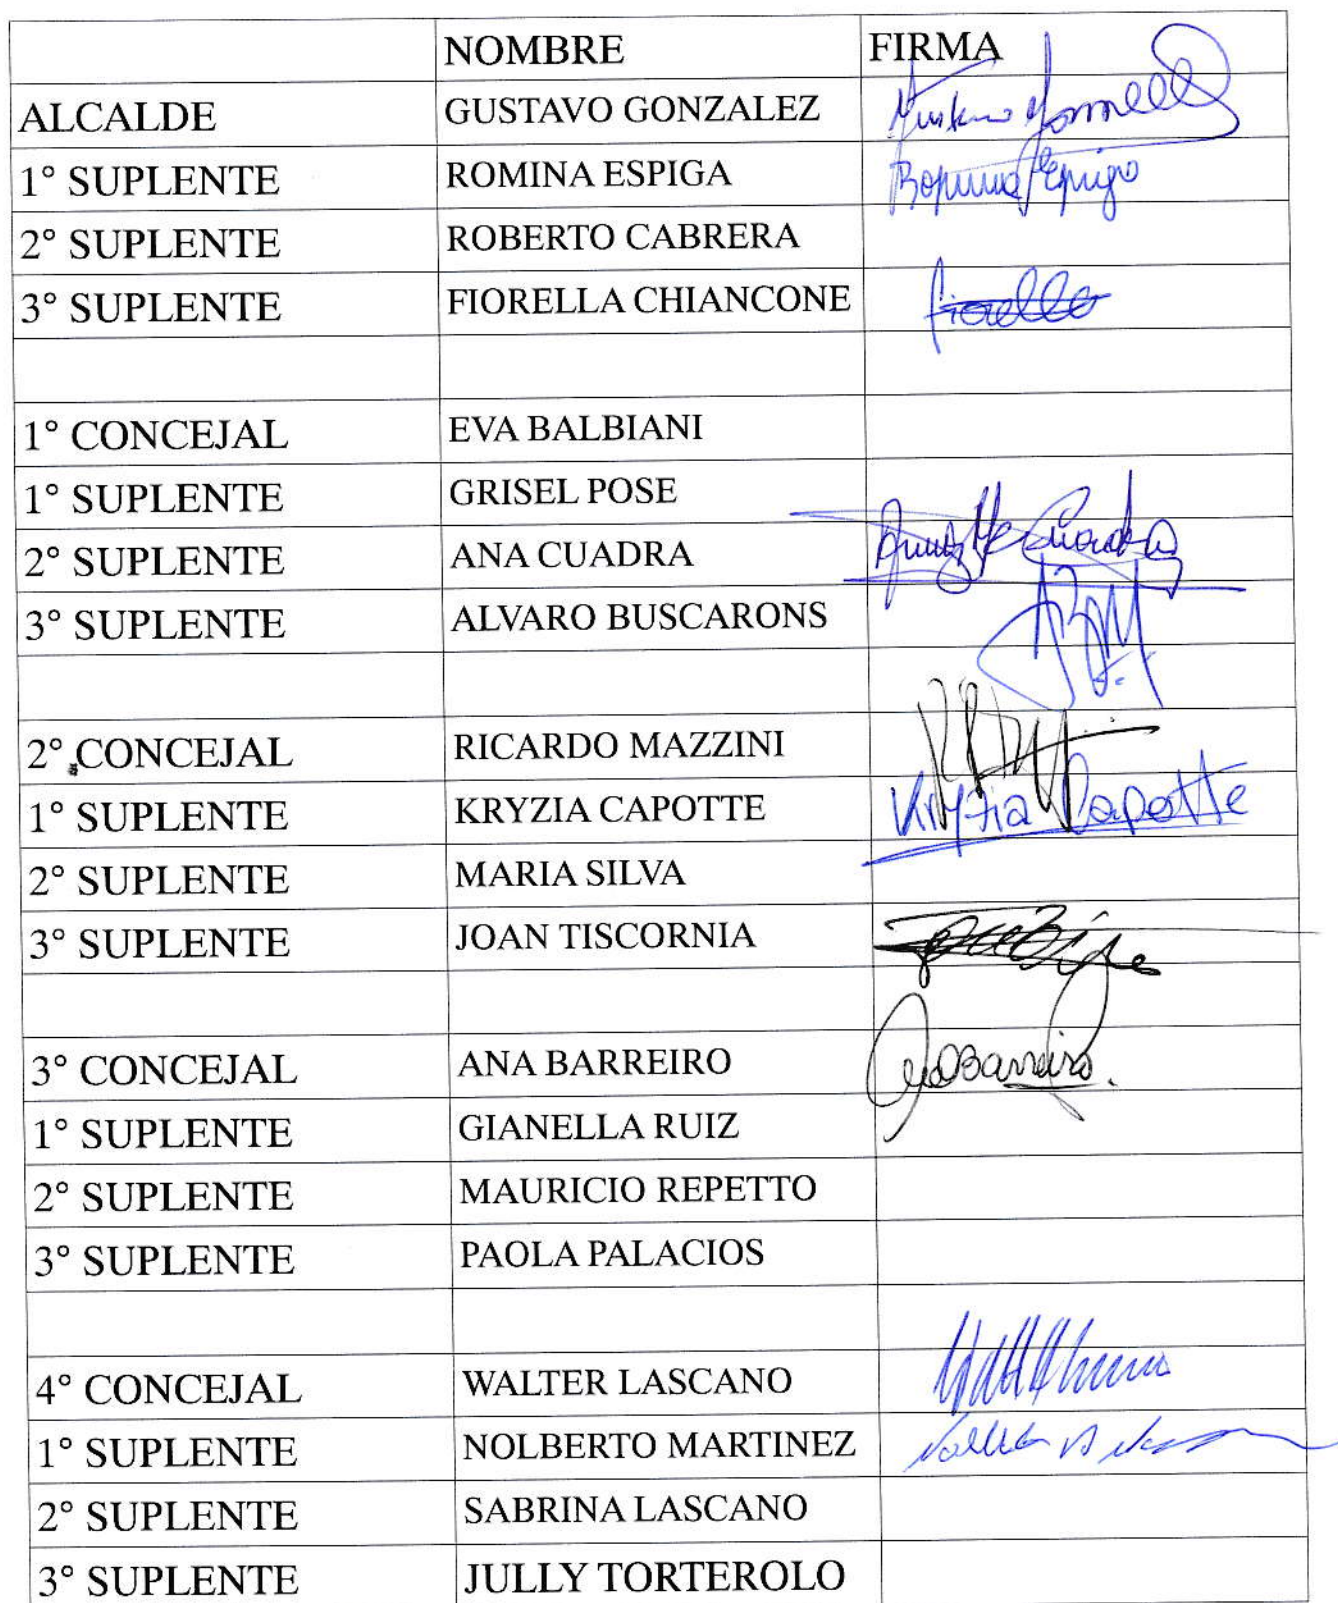 NOMBRE FIRMA
ALCALDE GUSTAVO GONZALEZ
1° SUPLENTE ROMINA ESPIGA Romina Espiga
2° SUPLENTE ROBERTO CABRERA
3° SUPLENTE FIORELLA CHIANCONE fiorella
1° CONCEJAL EVA BALBIANI
1° SUPLENTE GRISEL POSE
2° SUPLENTE ANA CUADRA
3° SUPLENTE ALVARO BUSCARONS
2° CONCEJAL RICARDO MAZZINI
1° SUPLENTE KRYZIA CAPOTTE Kryzia Capotte
2° SUPLENTE MARIA SILVA
3° SUPLENTE JOAN TISCORNIA
3° CONCEJAL ANA BARREIRO Ana Barreiro.
1° SUPLENTE GIANELLA RUIZ
2° SUPLENTE MAURICIO REPETTO
3° SUPLENTE PAOLA PALACIOS
4° CONCEJAL WALTER LASCANO
1° SUPLENTE NOLBERTO MARTINEZ
2° SUPLENTE SABRINA LASCANO
3° SUPLENTE JULLY TORTEROLO